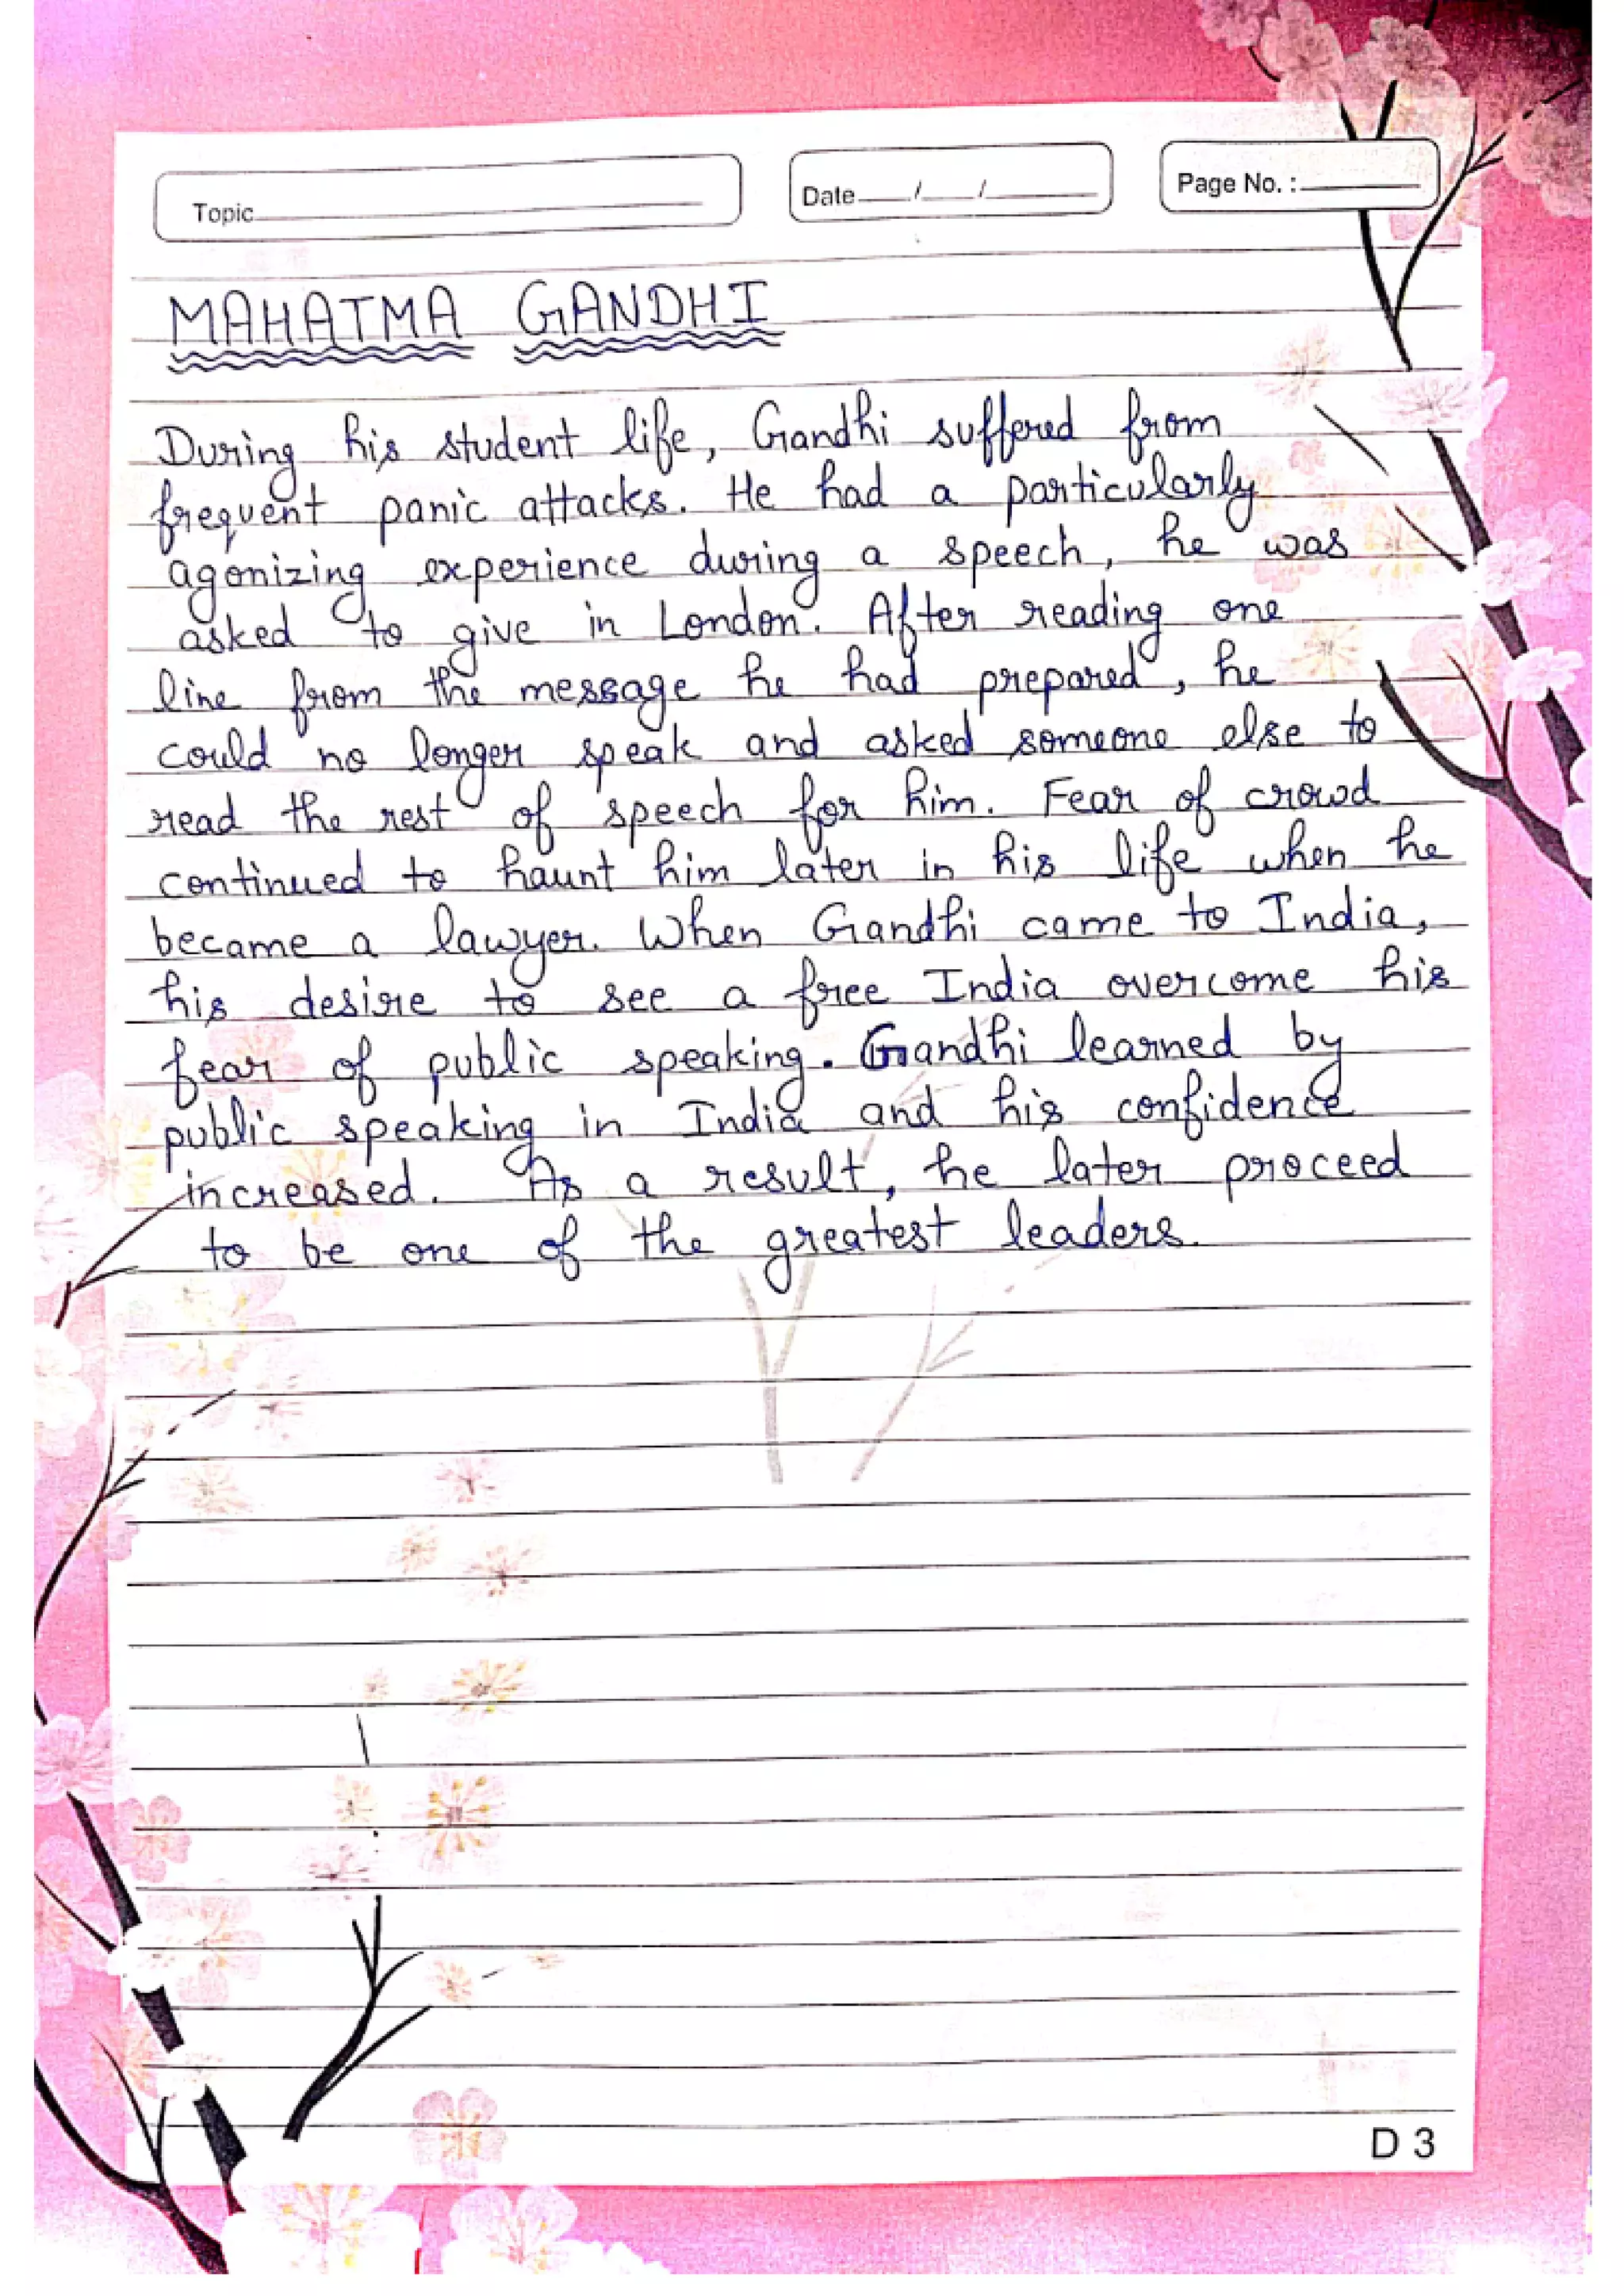 Topic
Date / /
Page No. :
MAHATMA GANDHI
During his student life, Gandhi suffered from
frequent panic attacks. He had a particularly
agonizing experience during a speech, he was
asked to give in London. After reading one
line from the message he had prepared, he
could no longer speak and asked someone else to
read the rest of speech for him. Fear of crowd
continued to haunt him later in his life when he
became a lawyer. When Gandhi came to India,
his desire to see a free India overcome his
fear of public speaking. Gandhi learned by
public speaking in India and his confidence
increased. As a result, he later proceed
to be one of the greatest leaders.
D 3